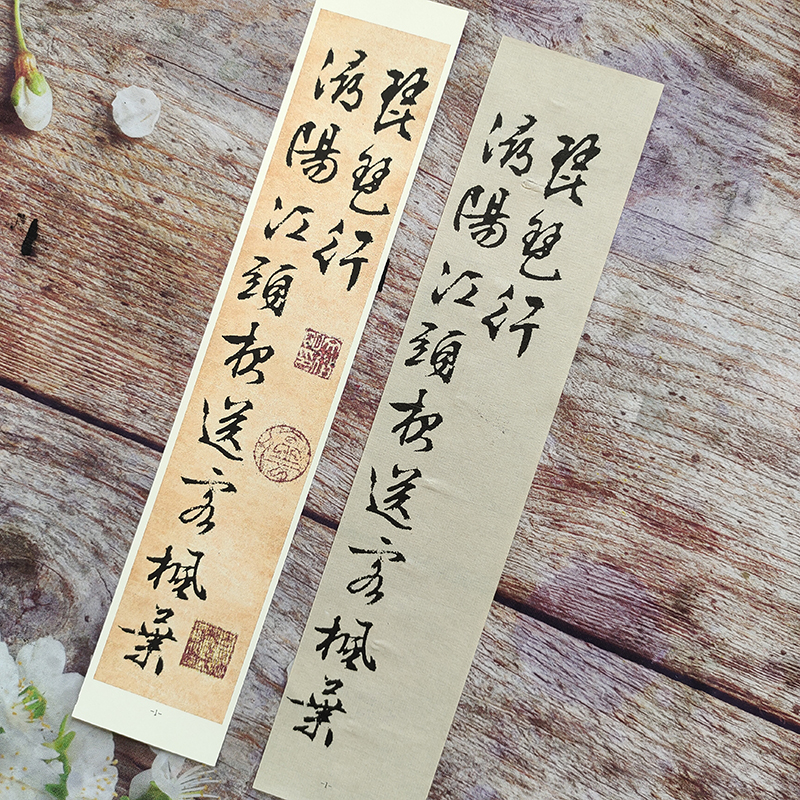 琵琶行
潯陽江頭夜送客楓葉
-1-
琵琶行
潯陽江頭夜送客楓葉
-1-